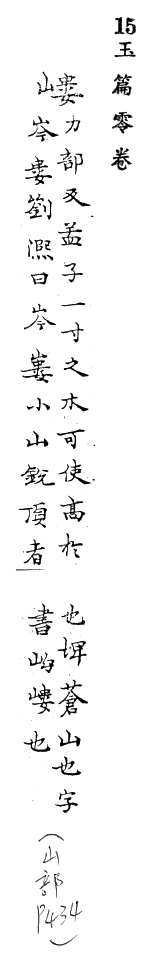 15
玉篇零卷
嶁力部反孟子一寸之木可使高於
岑婁劉熈曰岑嶁小山銳頂者
也埤蒼山也字
書岣嶁也
(山部P434)